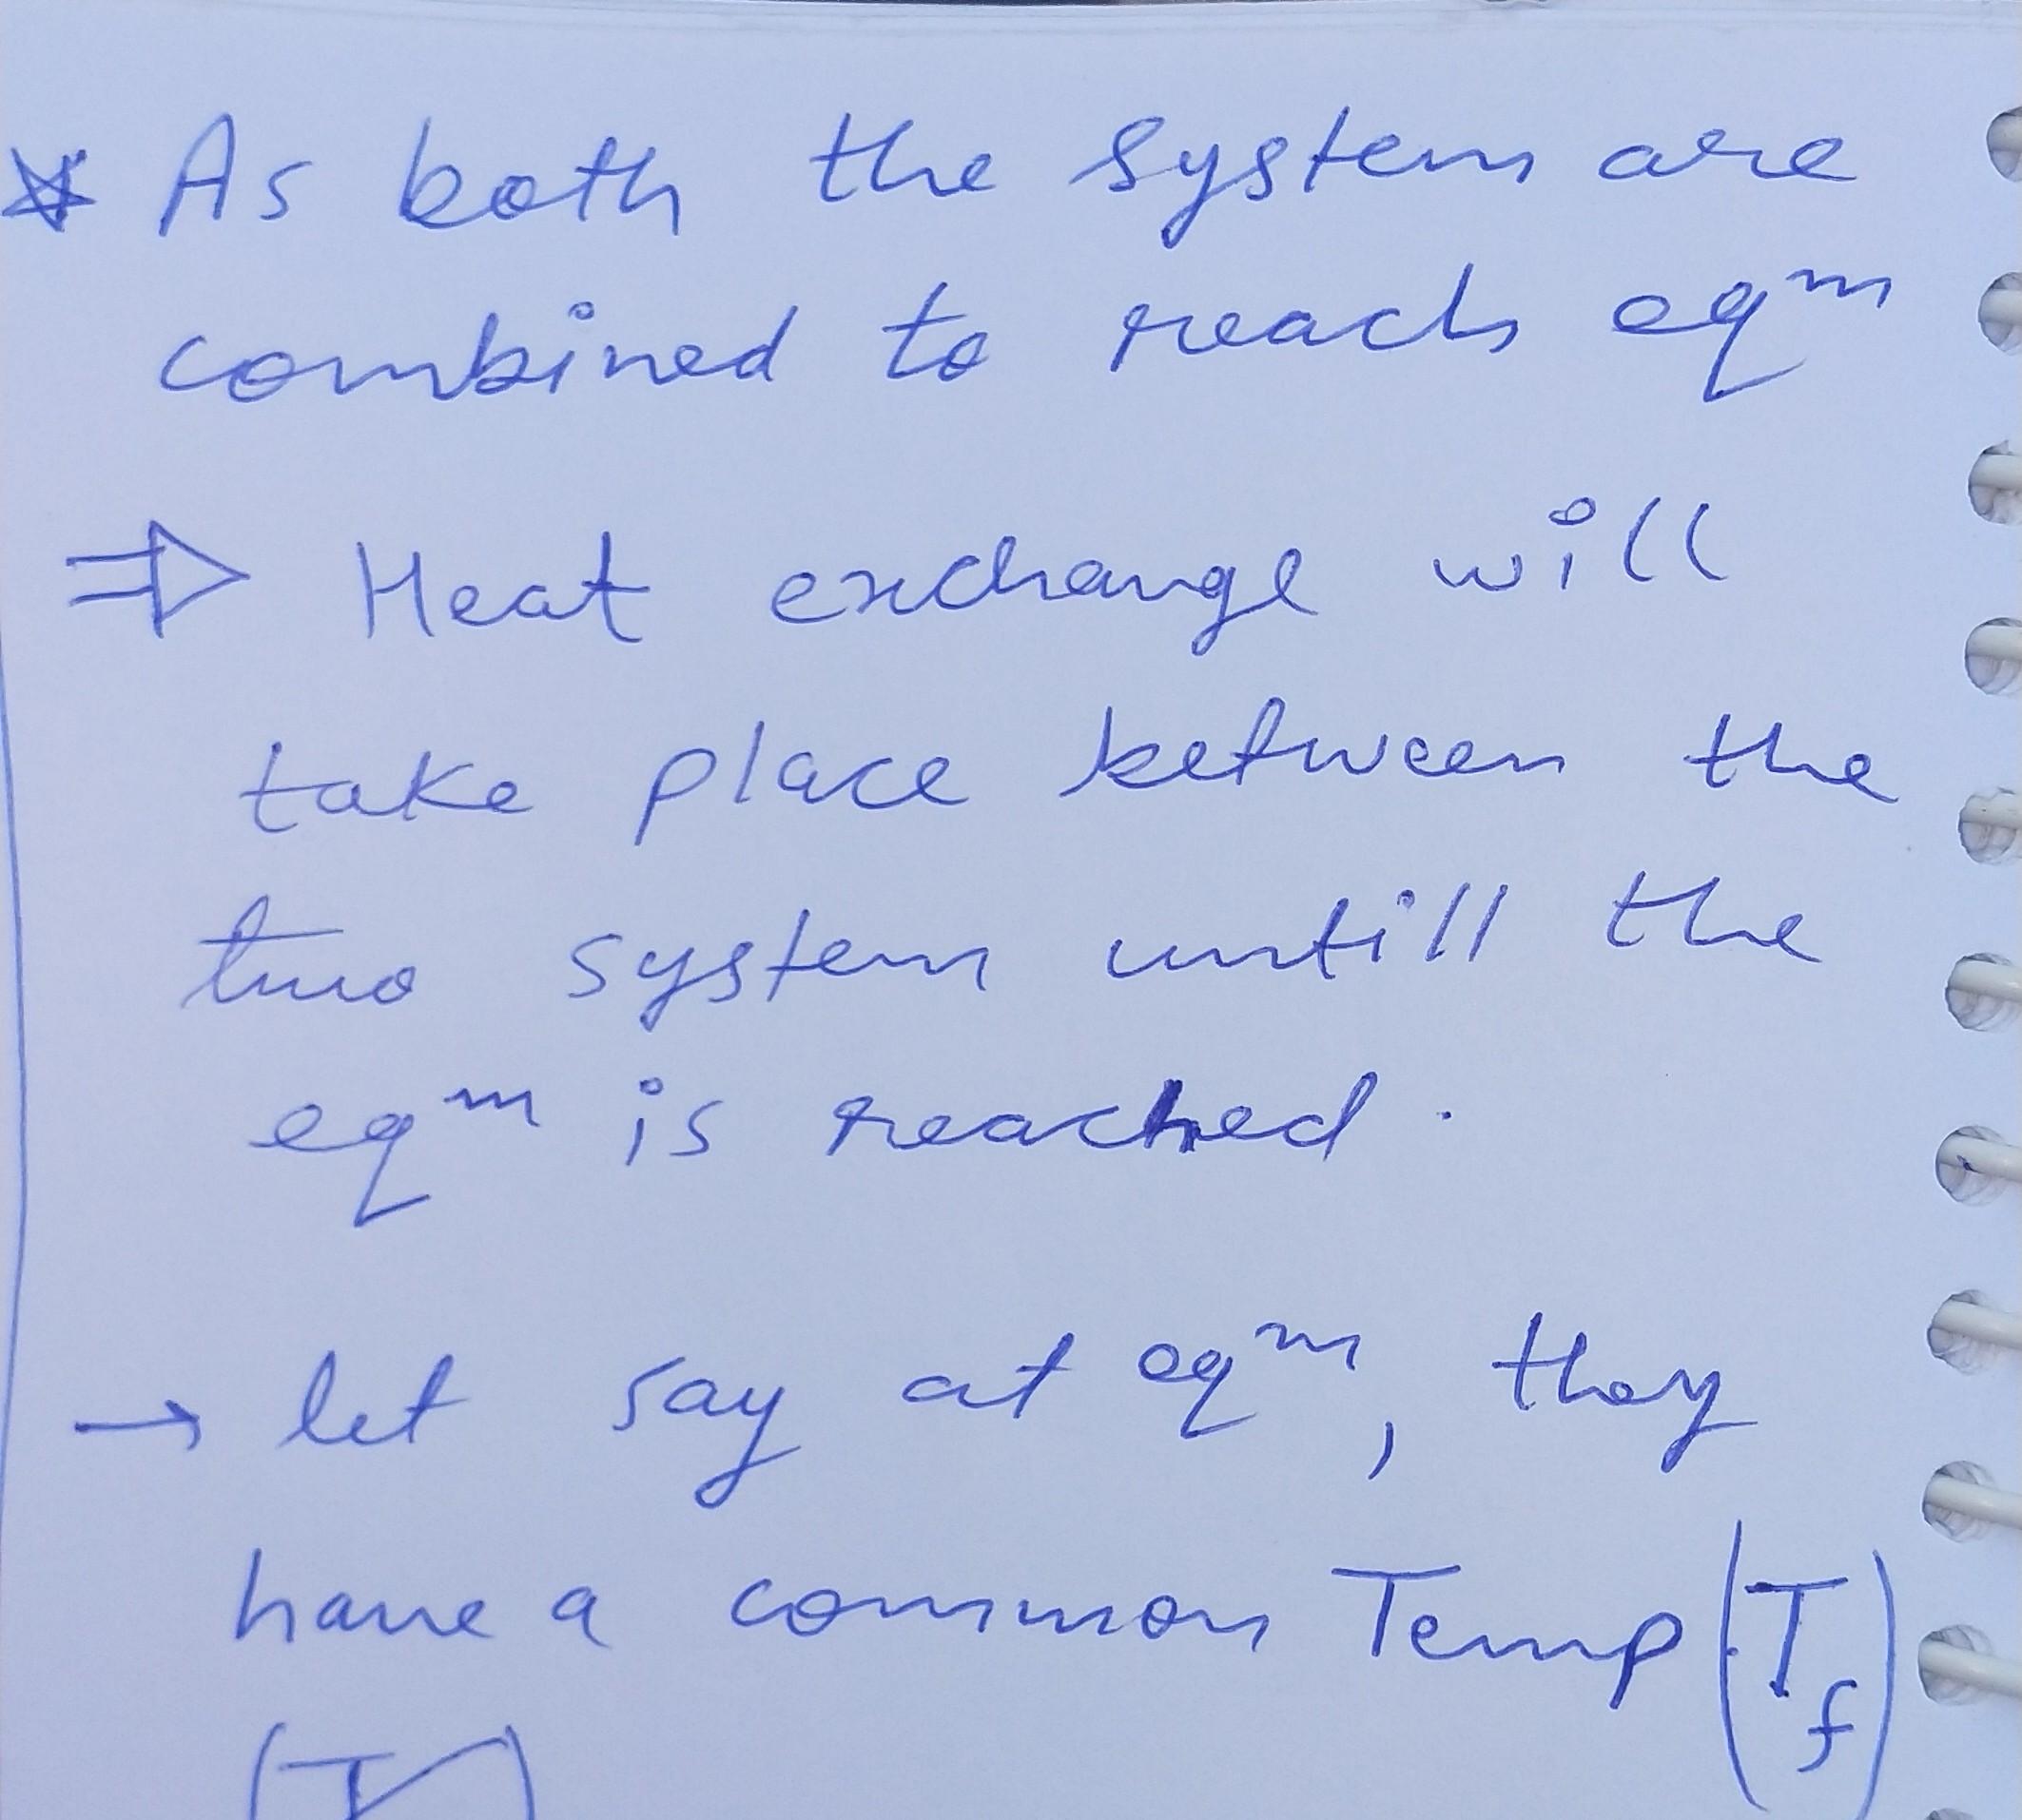 * As both the system are
combined to reach eqᵐ
⇒ Heat exchange will
take place between the
two system untill the
eqᵐ is reached.
→ let say at eqᵐ, they
have a common Temp (T_f)
(T